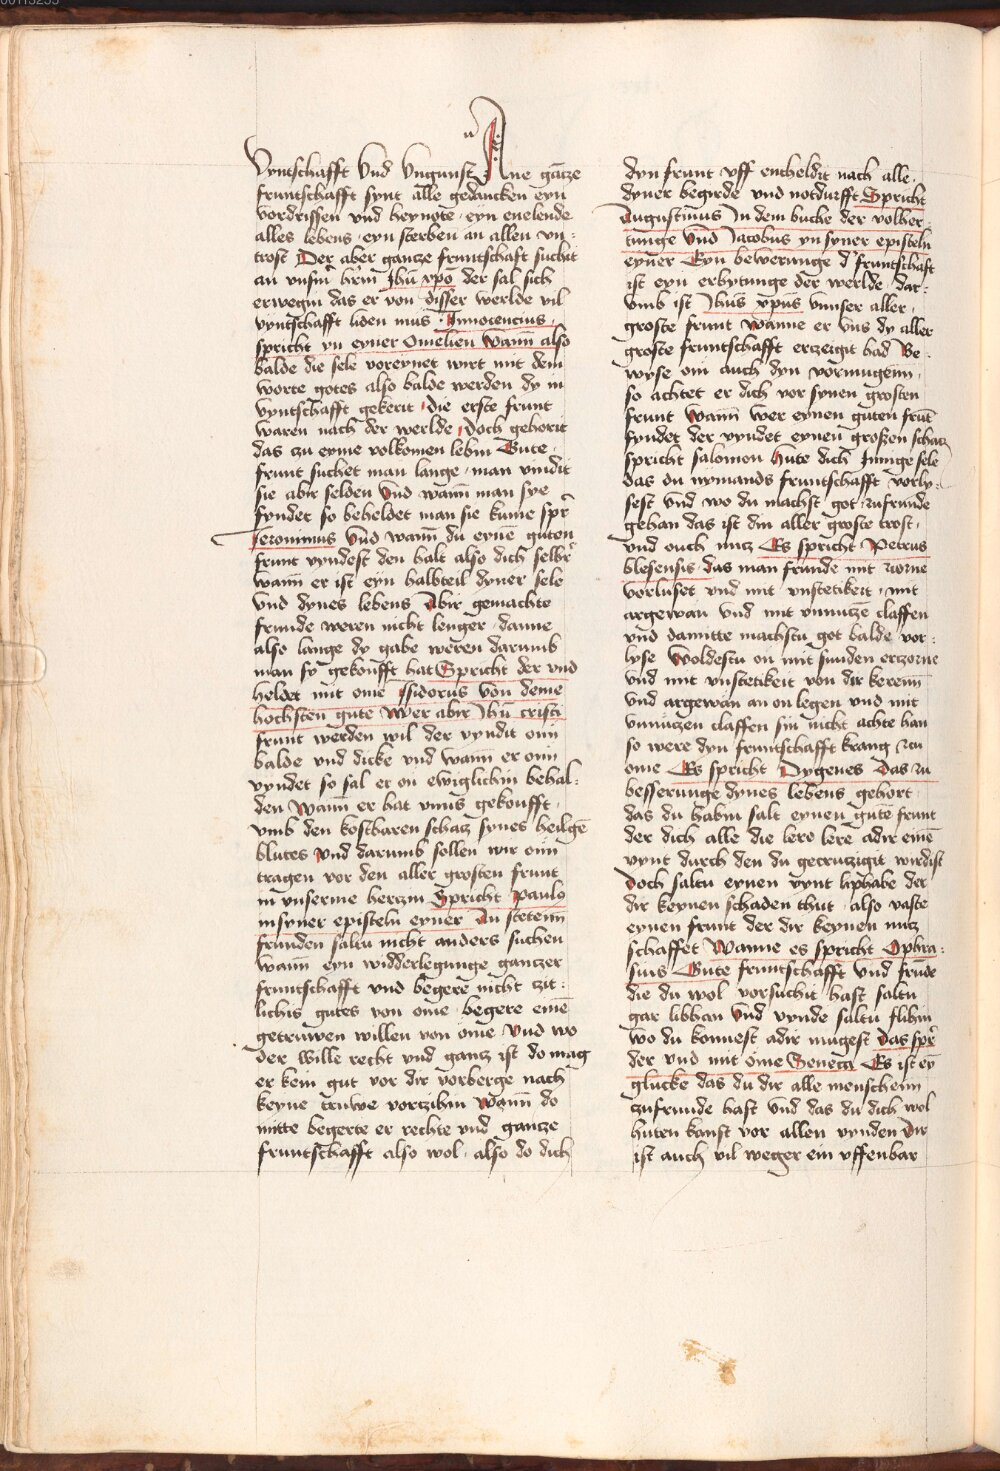 Vyntschafft Vnd Vngunst Ane gãtze
fruntschafft synt alle gedancken eyn
vordrissen vnd heymote · eyn enelende
alles lebens · eyn sterben an allen vn¬
trost Der aber gantze fruntschaft suchit
an vnsm̃ hr̃m Jhũ xpõ der sal sich
erwegin das er von disser werlde vil
vyntschafft liden mus · Jnnocencius ·
spricht yn eyner Omelien Wann also
balde die sele voreynet wirt mit dem
worte gotes also balde werden dy in
vyntschafft gekerit · die erste frunt
waren nach der werlde · doch gehorit
das zu eyme volkomen lebin Gute ·
frunt suchet man lange · man vindit
sie abir selden Vnd wann man sye
fyndet so beheldet man sie kume spr̃
Jeronimus Vnd wann du eynẽ guten
frunt vyndest den halt also dich selbr̃
wann er ist eyn halbteil dyner sele
vnd dynes lebens Abir gemachte
frunde weren nicht lenger · danne
also lange dy gabe weren darumb
man sy gekoufft hat Spricht der vnd
heldet mit ome Jsidorus von deme
hochsten gute Wer abir Jhũ cristi
frunt werden wil der vyndit oin
balde vnd dicke vnd wann er oin
vyndet so sal er on ewiglichin behal¬
den Wann er hat vnns gekoufft ·
vmb den kostbaren schatz synes heilgẽ
blutes Vnd darumb sollen wir oin
tragen vor den aller grosten frunt
in vnserme hertzin Spricht paulꝰ
in syner episteln eyner Zu stetenn
frunden saltu nicht anders suchen
wann eyn widderlegunge gantzer
fruntschafft vnd begere nicht zit¬
lichis gutes von ome · begere einẽ
getruwen willen von ome · Vnd wo
der wille recht vnd gantz ist do mag
er kein gut vor dir vorberge nach
keyne truwe vortzihin Wann do
mitte begerte er rechte vnd gantze
fruntschafft also wol · also do dich
dyn frunt vff entheldit nach alle ·
dyner begirde vnd notdurfft Spricht
Augustinus Jn dem buche der volher¬
tunge Vnd Jacobus yn syner episteln
eyner Eyn bewerunge d' fruntschafft
ist eyn erbytunge der werlde · dar¬
vmb ist Jhũs xp̃us vnnser aller ·
groste frunt Wanne er vns dy aller
groste fruntschafft ertzeigit had Be¬
wyse oin auch dyn vormugenn ·
so achtet er dich vor synen grosten
frunt Wann wer eynen guten frũt
fyndet der vyndet eynen großen schatz
spricht salomon Hute dich Jnnige sele
das du nymands fruntschafft vorly¬
sest Vnd wo du machst got zufrunde
gehan das ist din aller groste trost ·
vnd ouch nutz Es spricht Petrus
blesensis das man frunde mit zorne
vorluset vnd mit vnstetikeit · mit
argewan Vnd mit vnnutzẽ claffen
vnd damitte machstu got balde vor¬
lyse Woldestu on mit sunden ertzorne
vnd mit vnstetikeit von dir kerenn
vnd argewan an on legen vnd mit
vnnutzen claffen sin nicht achte han
so were dyn fruntschafft krang zcu
ome Es spricht Dygenes Das zu
besserunge dynes lebens gehort ·
das du habin salt eynen gutẽ frunt
der dich alle die lere lere adir einẽ
vynt durch den du getrutzigit wirdist
Doch saltu eynen vynt liphabe der
dir keynen schaden thut · also vaste
eynen frunt der dir keynen nutz
schaffet Wanne es spricht Ophra¬
sius Gute fruntschafft Vnd frũde
die du wol vorsuchit hast saltu
gar libhan Vnd vynde saltu flihin
wo du konnest adir mugest das spr̃
der vnd mit ome Seneca Es ist eỹ
glucke das du dir alle menschenn
zufrunde hast Vnd das du dich wol
huten kanst vor allen vynden Dir
ist auch vil weger ein vffenbar